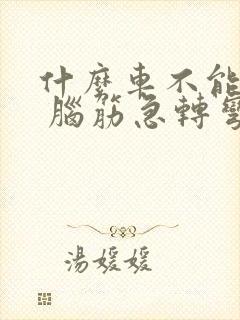 什麼車不能
腦筋急轉彎
湯媛媛